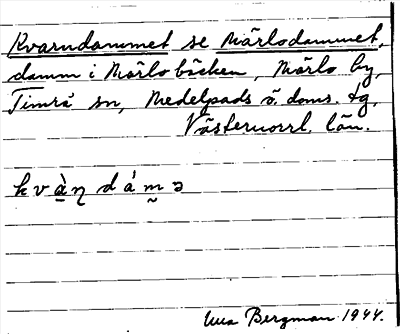 Kvarndammet se Märlodammet,
damm i Märlobäcken, Märlo by,
Timrå sn, Medelpads ö. doms. tg,
Västernorrl. län.
kvàṇdám̰ə
Bergman 1944.